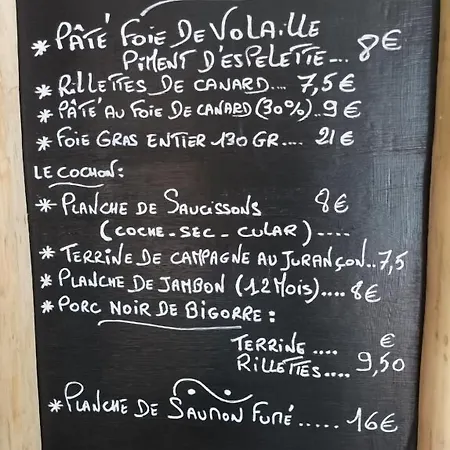 * PÂTÉ FOIE DE VOLAILLE
PIMENT D'ESPELETTE... 8€
* RILLETTES DE CANARD.... 7,5€
* PÂTÉ AU FOIE DE CANARD (30%)..9€
* FOIE GRAS ENTIER 130 GR.... 21€
LE COCHON:
* PLANCHE DE SAUCISSONS 8€
(COCHE-SEC-CULAR)....
* TERRINE DE CAMPAGNE AU JURANÇON..7,5
* PLANCHE DE JAMBON (12 MOIS).... 8€
* PORC NOIR DE BIGORRE:
TERRINE.... €
RILLETTES.... 9,50
* PLANCHE DE SAUMON FUMÉ..... 16€